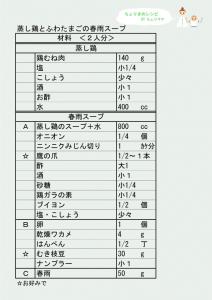 ちょりまめレシピ
蒸し鶏とふわたまごの春雨スープ
材料 <2人分>
蒸し鶏
鶏むね肉 140 g
塩 小1/4
こしょう 少々
酒 小1
お酢 小1
水 400 cc
春雨スープ
A 蒸し鶏のスープ+水 800 cc
オニオン 1/4 個
ニンニクみじん切り 1 片分
☆ 鷹の爪 1/2~1本
酢 大1
酒 小1
砂糖 小1/4
鶏ガラの素 小1/4
ブイヨン 1/2 個
塩・こしょう 少々
B 卵 1 個
乾燥ワカメ 4 g
はんぺん 1/2 丁
☆ むき枝豆 30 g
ナンプラー 小1
C 春雨 50 g
☆お好みで